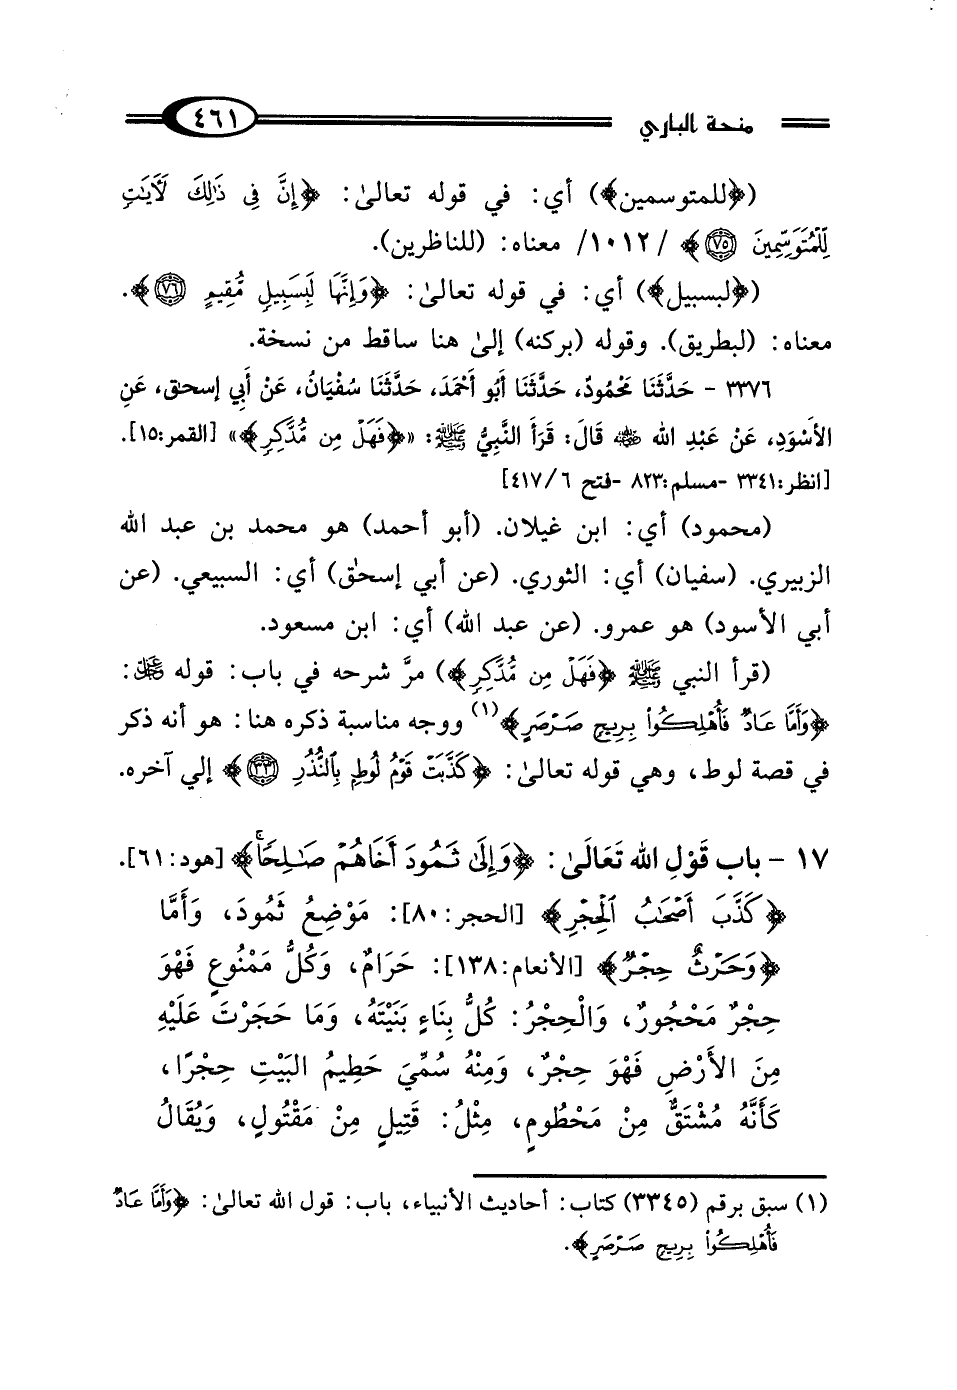 منحة الباري ٤٦١
(﴿للمتوسمين﴾) أي: في قوله تعالىٰ: ﴿إِنَّ فِي ذَٰلِكَ لَآيَاتٍ
لِّلْمُتَوَسِّمِينَ ٧٥﴾ /١٠١٢/ معناه: (للناظرين).
(﴿لبسبيل﴾) أي: في قوله تعالىٰ: ﴿وَإِنَّهَا لَبِسَبِيلٍ مُّقِيمٍ ٧٦﴾.
معناه: (لبطريق). وقوله (بركنه) إلىٰ هنا ساقط من نسخة.
٣٣٧٦ - حَدَّثَنَا مَحْمُودٌ، حَدَّثَنَا أَبُو أَحْمَدَ، حَدَّثَنَا سُفْيَانُ، عَنْ أَبِي إسحٰق، عَنِ
الأَسْوَدِ، عَنْ عَبْدِ الله ﷺ قَالَ: قَرَأَ النَّبِيُّ ﷺ: «﴿فَهَلْ مِن مُّدَّكِرٍ﴾» [القمر:١٥].
[انظر:٣٣٤١ -مسلم:٨٢٣ -فتح ٦/ ٤١٧]
(محمود) أي: ابن غيلان. (أبو أحمد) هو محمد بن عبد الله
الزبيري. (سفيان) أي: الثوري. (عن أبي إسحٰق) أي: السبيعي. (عن
أبي الأسود) هو عمرو. (عن عبد الله) أي: ابن مسعود.
(قرأ النبي ﷺ ﴿فَهَلْ مِن مُّدَّكِرٍ﴾) مرَّ شرحه في باب: قوله ﷻ:
﴿وَأَمَّا عَادٌ فَأُهْلِكُوا۟ بِرِيحٍ صَرْصَرٍ﴾(١) ووجه مناسبة ذكره هنا: هو أنه ذكر
في قصة لوط، وهي قوله تعالىٰ: ﴿كَذَّبَتْ قَوْمُ لُوطٍ بِٱلنُّذُرِ ٣٣﴾ إلي آخره.
١٧ - باب قَوْلِ الله تَعَالَىٰ: ﴿وَإِلَىٰ ثَمُودَ أَخَاهُمْ صَٰلِحًا﴾ [هود:٦١].
﴿كَذَّبَ أَصْحَٰبُ ٱلْحِجْرِ﴾ [الحجر:٨٠]: مَوْضِعُ ثَمُودَ، وَأَمَّا
﴿وَحَرْثٌ حِجْرٌ﴾ [الأنعام:١٣٨]: حَرَامٌ، وَكُلُّ مَمْنُوعٍ فَهْوَ
حِجْرٌ مَحْجُورٌ، وَالْحِجْرُ: كُلُّ بِنَاءٍ بَنَيْتَهُ، وَمَا حَجَرْتَ عَلَيْهِ
مِنَ الأَرْضِ فَهْوَ حِجْرٌ، وَمِنْهُ سُمِّيَ حَطِيمُ البَيْتِ حِجْرًا،
كَأَنَّهُ مُشْتَقٌّ مِنْ مَحْطُومٍ، مِثْلُ: قَتِيلٍ مِنْ مَقْتُولٍ، وَيُقَالُ
(١) سبق برقم (٣٣٤٥) كتاب: أحاديث الأنبياء، باب: قول الله تعالىٰ: ﴿وَأَمَّا عَادٌ
فَأُهْلِكُوا۟ بِرِيحٍ صَرْصَرٍ﴾.